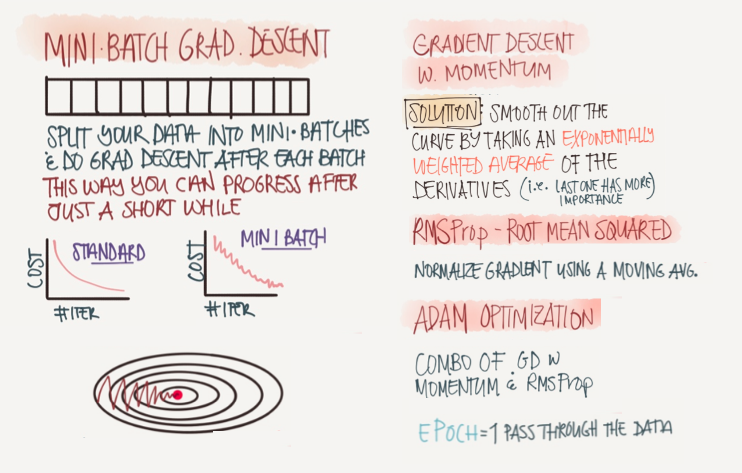 MINI·BATCH GRAD. DESCENT
SPLIT YOUR DATA INTO MINI·BATCHES
& DO GRAD DESCENT AFTER EACH BATCH
THIS WAY YOU CAN PROGRESS AFTER
JUST A SHORT WHILE
COST
STANDARD
#ITER
COST
MINI BATCH
#ITER
GRADIENT DESCENT
W. MOMENTUM
SOLUTION: SMOOTH OUT THE
CURVE BY TAKING AN EXPONENTIALLY
WEIGHTED AVERAGE OF THE
DERIVATIVES (i.e. LAST ONE HAS MORE
IMPORTANCE)
RMSProp - ROOT MEAN SQUARED
NORMALIZE GRADIENT USING A MOVING AVG.
ADAM OPTIMIZATION
COMBO OF GD W
MOMENTUM & RMSProp
EPOCH = 1 PASS THROUGH THE DATA